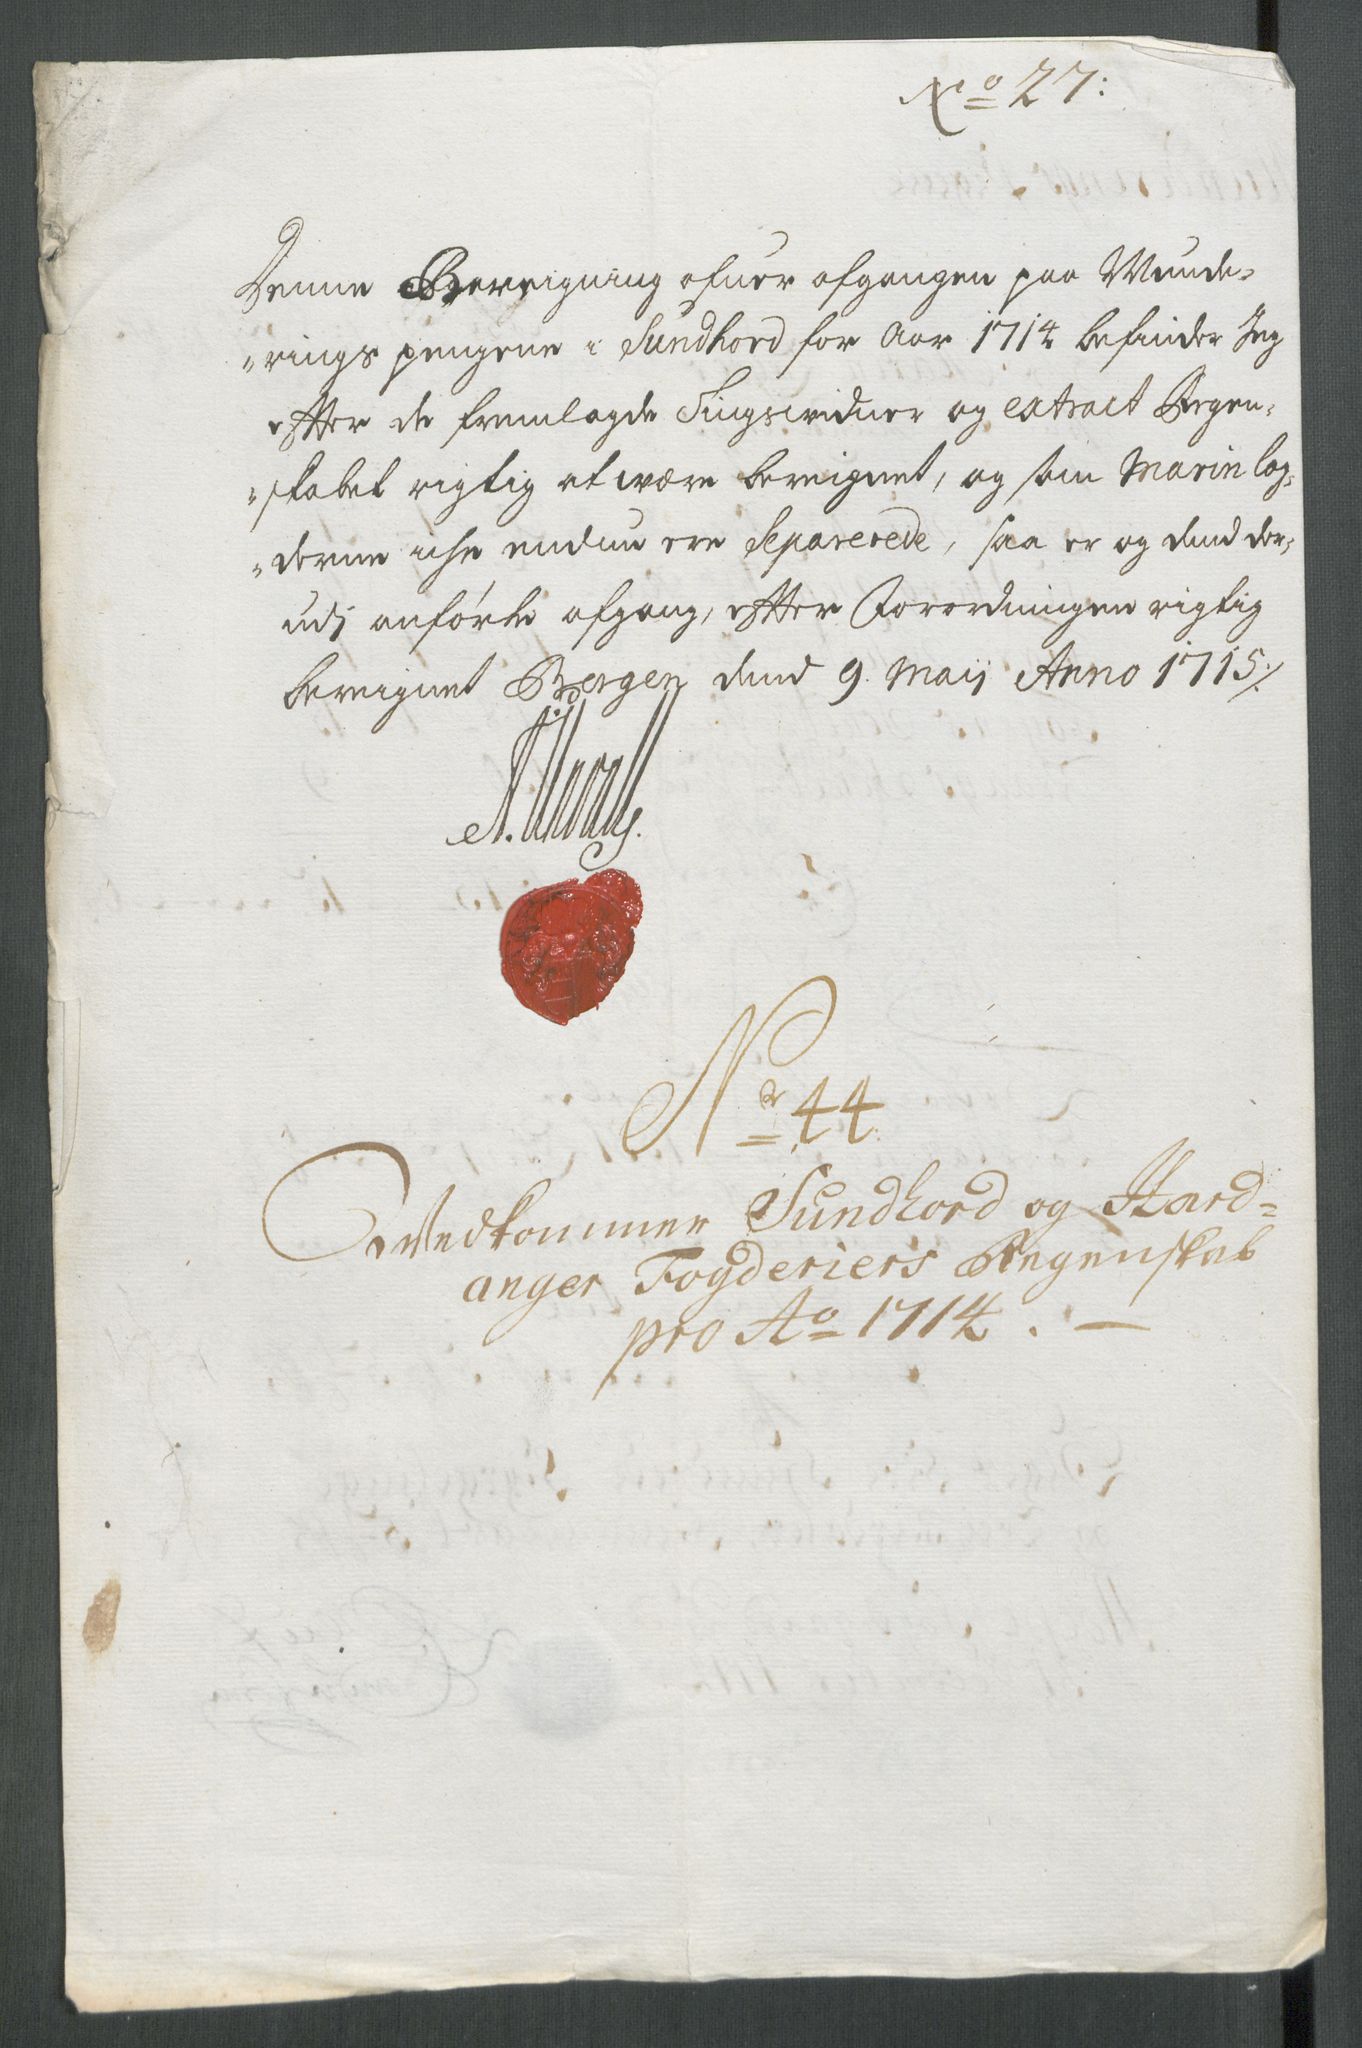 No 27:
Denne Bereigning ofuer afgangen paa Munde-
-rings pengene i Sundhord for Aar 1714 befinder Jeg
effter de fremlagde Tingsvidner og extract Regen-
-skabet rigtig at wære bereignet, og som Marin læg-
-derne iche endnu ere Separerede, saa er og dend der-
udj anförte afgang, effter Forordningen rigtig
bereignet Bergen dend 9. Maij Anno 1715 ./.
Nr 44
Vedkommer Sundhord og Hard-
anger Fogderiers Regenskab
pro Ao 1714. —